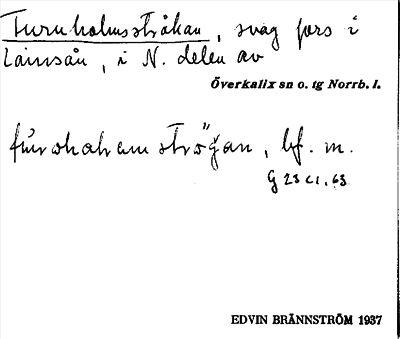 Furuholmsstråkan, svag fors i
Lainsån, i N. delen av
Överkalix sn o. tg Norrb. l.
bf. m.
G 23 c1, 63
EDVIN BRÄNNSTRÖM 1937